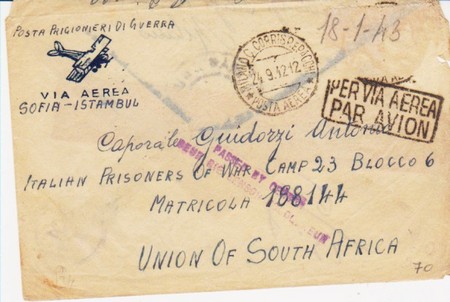 POSTA PRIGIONIERI DI GUERRA
VIA AEREA
SOFIA - ISTAMBUL
MILANO C. CORRISP. E PACCHI
24.9.42.12
POSTA AEREA
18-1-43
PER VIA AEREA
PAR AVION
Caporale Guidorzi Antonio
PASSED BY
ITALIAN PRISONERS OF WAR CAMP 23 BLOCCO 6
MATRICOLA 198144
UNION OF SOUTH AFRICA
70